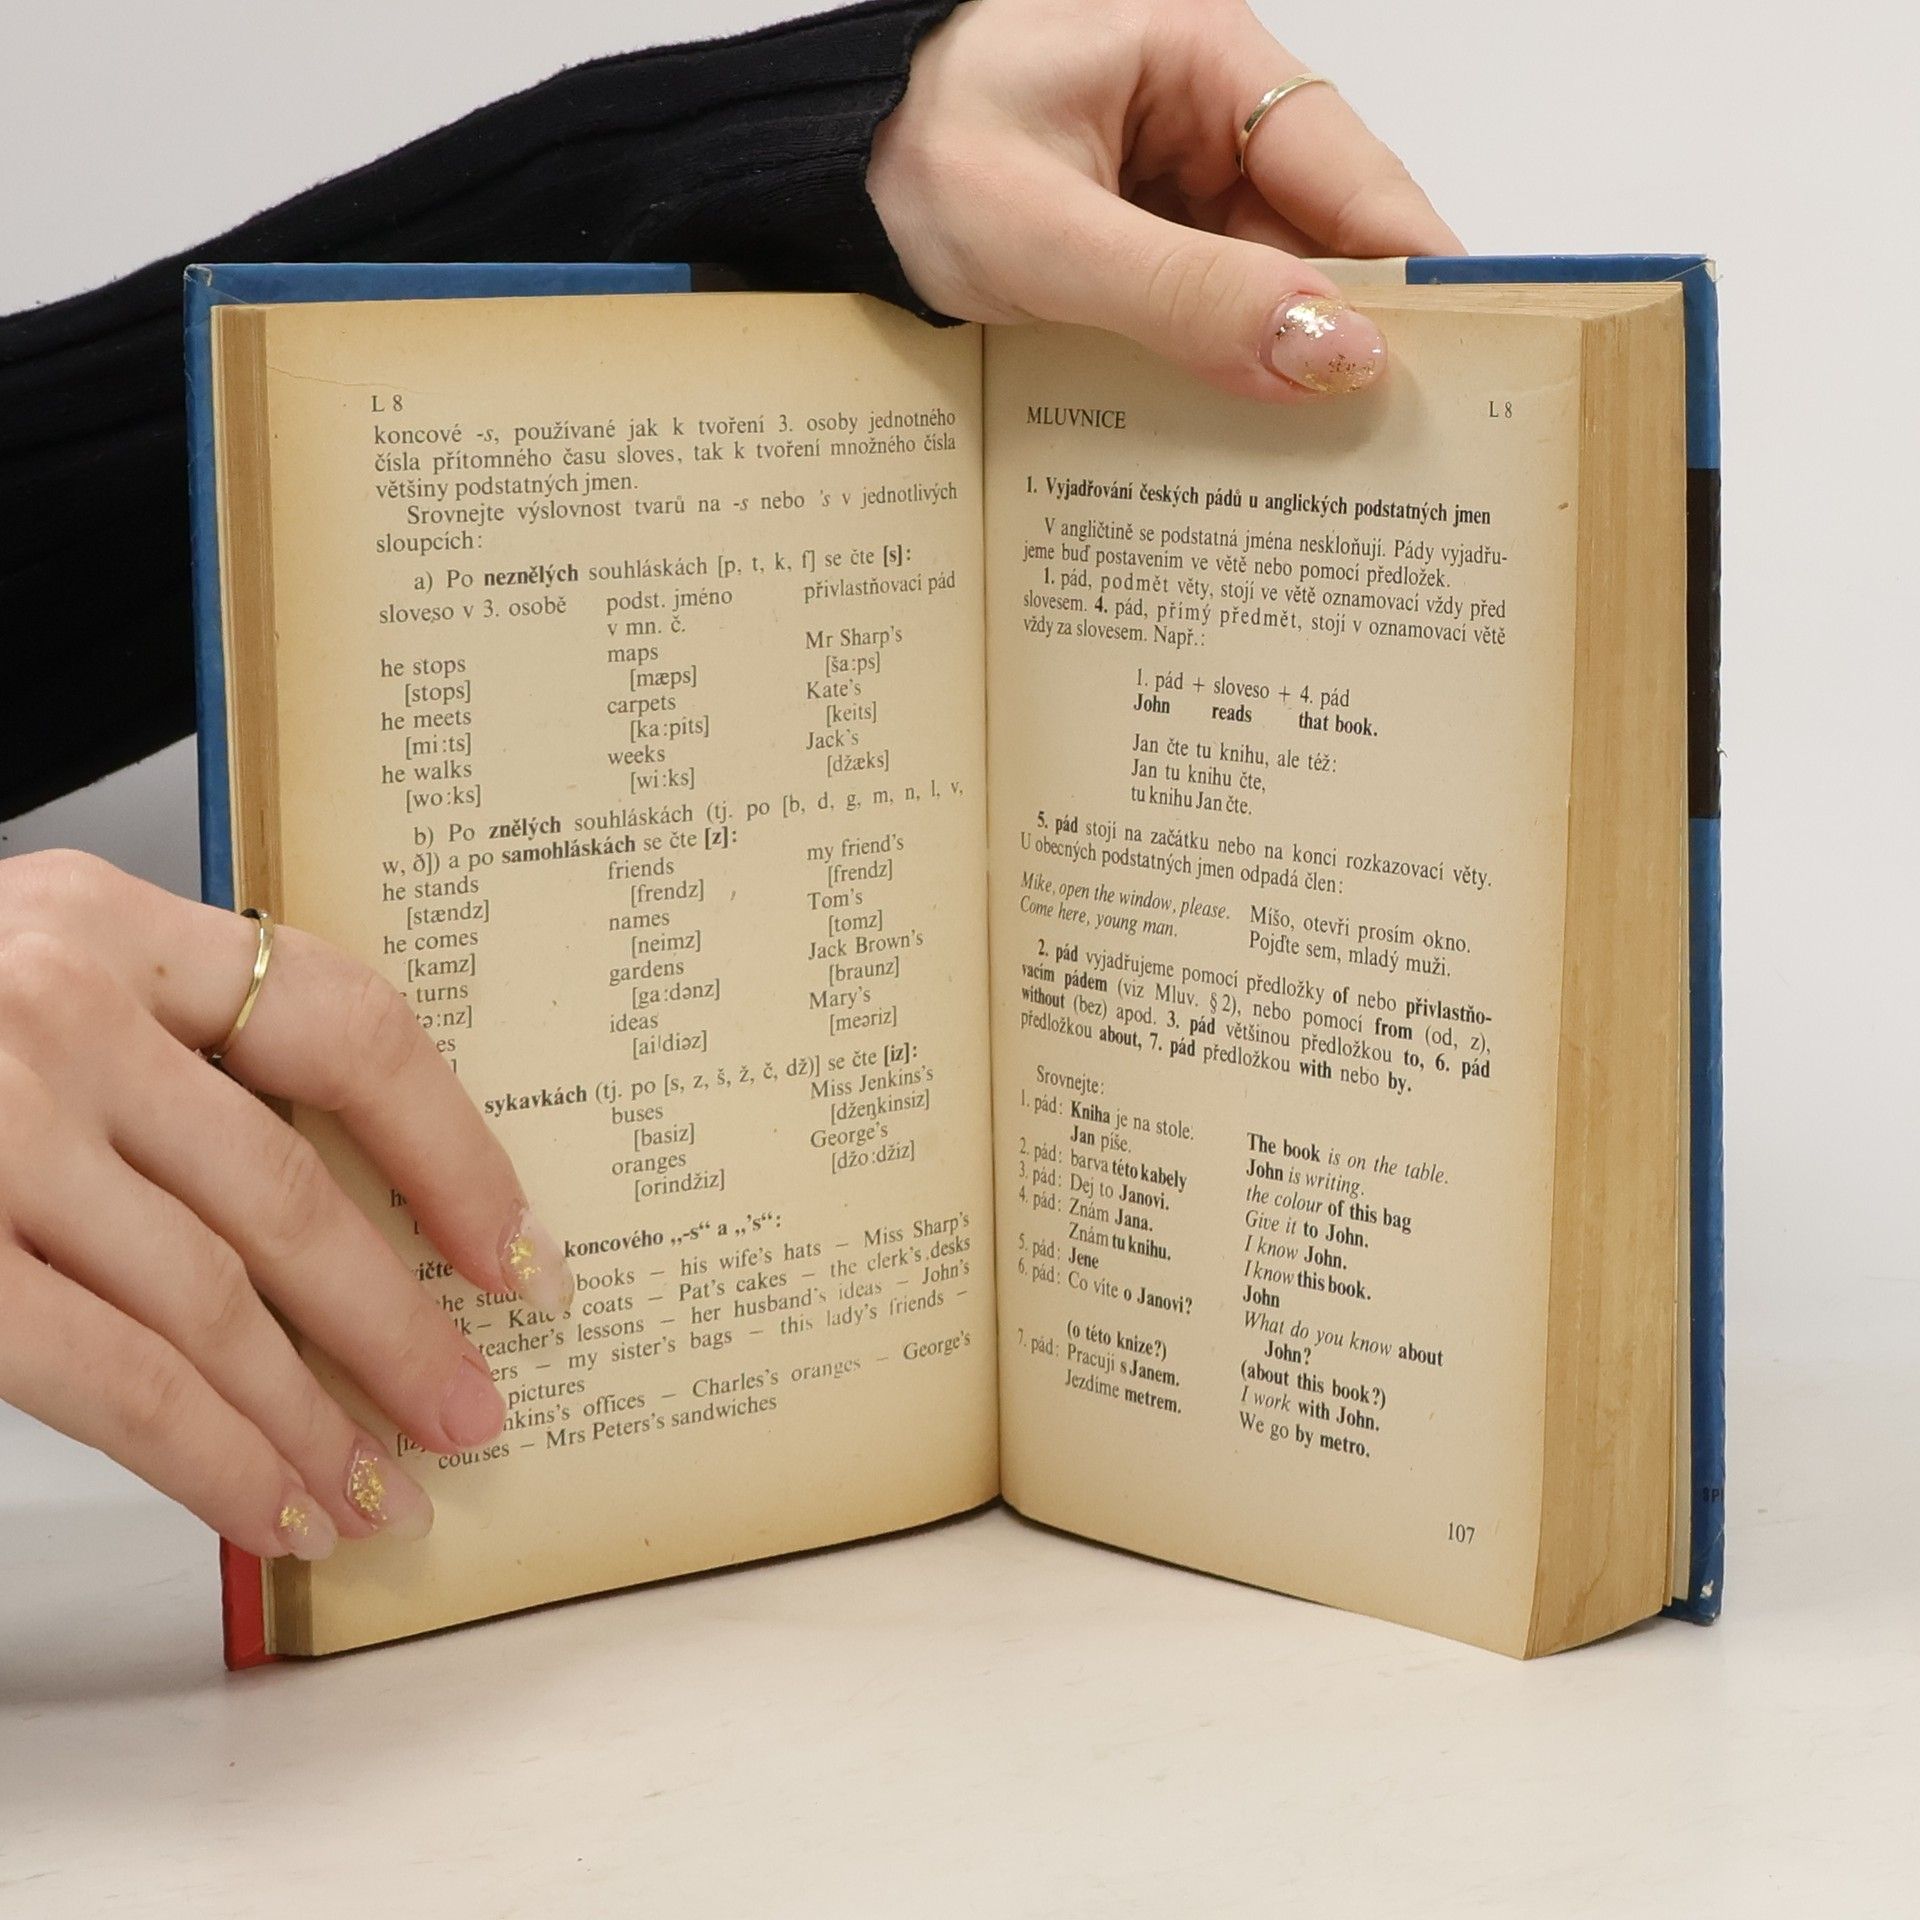 L 8
koncové -s, používané jak k tvoření 3. osoby jednotného
čísla přítomného času sloves, tak k tvoření množného čísla
většiny podstatných jmen.
Srovnejte výslovnost tvarů na -s nebo 's v jednotlivých
sloupcích:
a) Po neznělých souhláskách [p, t, k, f] se čte [s]:
sloveso v 3. osobě podst. jméno přivlastňovací pád
v mn. č.
he stops maps Mr Sharp's
[stops] [mæps] [ša:ps]
he meets carpets Kate's
[mi:ts] [ka:pits] [keits]
he walks weeks Jack's
[wo:ks] [wi:ks] [džæks]
b) Po znělých souhláskách (tj. po [b, d, g, m, n, l, v,
w, ð]) a po samohláskách se čte [z]:
he stands friends my friend's
[stændz] [frendz] [frendz]
he comes names Tom's
[kamz] [neimz] [tomz]
turns gardens Jack Brown's
[ga:dənz] [braunz]
ideas Mary's
[aiˈdiəz] [meəriz]
sykavkách (tj. po [s, z, š, ž, č, dž)] se čte [iz]:
buses Miss Jenkins's
[basiz] [dženkinsiz]
oranges George's
[orindžiz] [džo:džiz]
koncového „-s“ a „'s“:
books – his wife's hats – Miss Sharp's
coats – Pat's cakes – the clerk's desks
teacher's lessons – her husband's ideas – John's
– my sister's bags – this lady's friends –
pictures
offices – Charles's oranges – George's
courses – Mrs Peters's sandwiches
MLUVNICE L 8
1. Vyjadřování českých pádů u anglických podstatných jmen
V angličtině se podstatná jména neskloňují. Pády vyjadřu-
jeme buď postavením ve větě nebo pomocí předložek.
1. pád, podmět věty, stojí ve větě oznamovací vždy před
slovesem. 4. pád, přímý předmět, stojí v oznamovací větě
vždy za slovesem. Např.:
1. pád + sloveso + 4. pád
John reads that book.
Jan čte tu knihu, ale též:
Jan tu knihu čte,
tu knihu Jan čte.
5. pád stojí na začátku nebo na konci rozkazovací věty.
U obecných podstatných jmen odpadá člen:
Mike, open the window, please. Míšo, otevři prosím okno.
Come here, young man. Pojďte sem, mladý muži.
2. pád vyjadřujeme pomocí předložky of nebo přivlastňo-
vacím pádem (viz Mluv. § 2), nebo pomocí from (od, z),
without (bez) apod. 3. pád většinou předložkou to, 6. pád
předložkou about, 7. pád předložkou with nebo by.
Srovnejte:
1. pád: Kniha je na stole. The book is on the table.
Jan píše. John is writing.
2. pád: barva této kabely the colour of this bag
3. pád: Dej to Janovi. Give it to John.
4. pád: Znám Jana. I know John.
Znám tu knihu. I know this book.
5. pád: Jene John
6. pád: Co víte o Janovi? What do you know about
John?
(o této knize?) (about this book?)
7. pád: Pracuji s Janem. I work with John.
Jezdíme metrem. We go by metro.
107